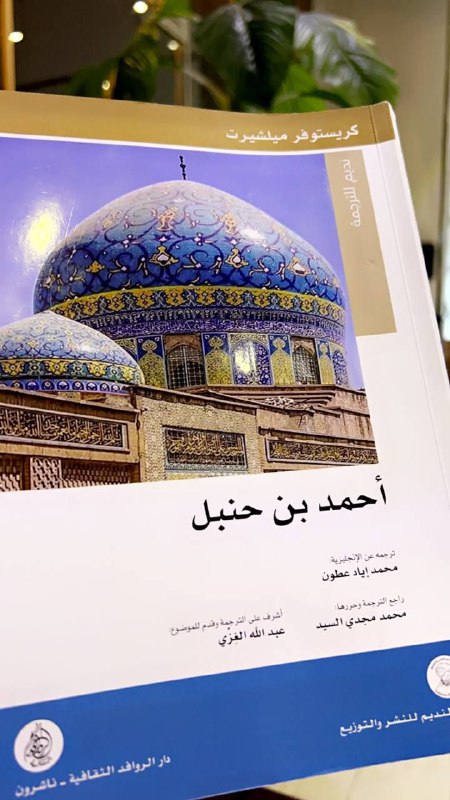 كريستوفر ميلشيرت
نديم للترجمة
أحمد بن حنبل
ترجمه عن الإنجليزية:
محمد إياد عطون
راجع الترجمة وحررها:
محمد مجدي السيد
أشرف على الترجمة وقدم للموضوع:
عبد الله الغزي
النديم للنشر والتوزيع
دار الروافد الثقافية - ناشرون